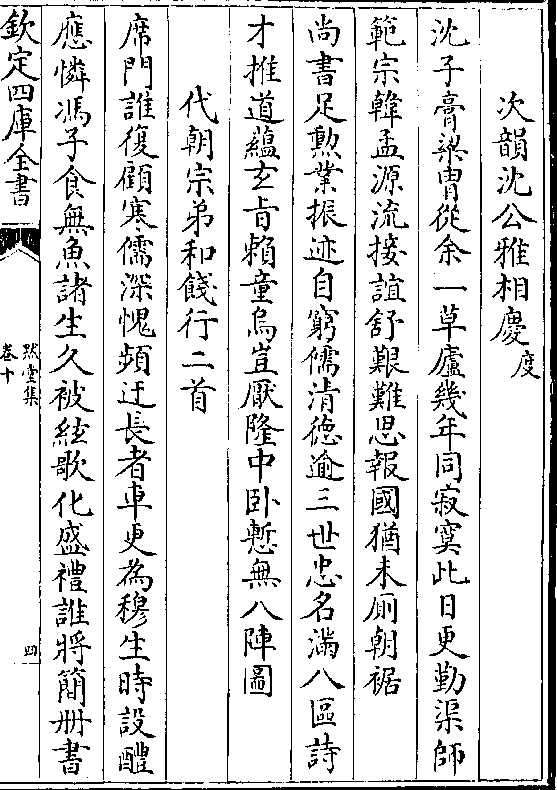 次韻沈公雅相慶度
沈子膏粱胄從余一草廬幾年同寂寞此日更勤渠師
範宗韓孟源流接誼舒艱難思報國猶未厠朝裾
尚書足勲業振迹自窮儒清德逾三世忠名滿八區詩
才推道蘊玄旨賴童烏豈厭隆中卧慙無八陣圖
代朝宗弟和餞行二首
席門誰復顧寒儒深愧頻迂長者車更為穆生時設醴
應憐馮子食無魚諸生久被絃歌化盛禮誰將簡冊書
欽定四庫全書
默堂集
卷十
四